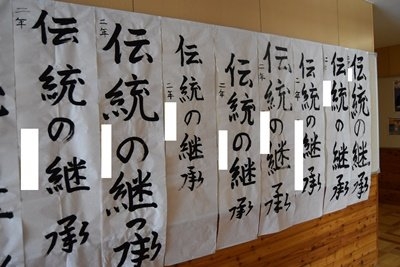 二年
伝統の継承
二年
伝統の継承
二年
伝統の継承
二年
伝統の継承
二年
伝統の継承
二年
伝統の継承
伝統の継承
伝統の継承